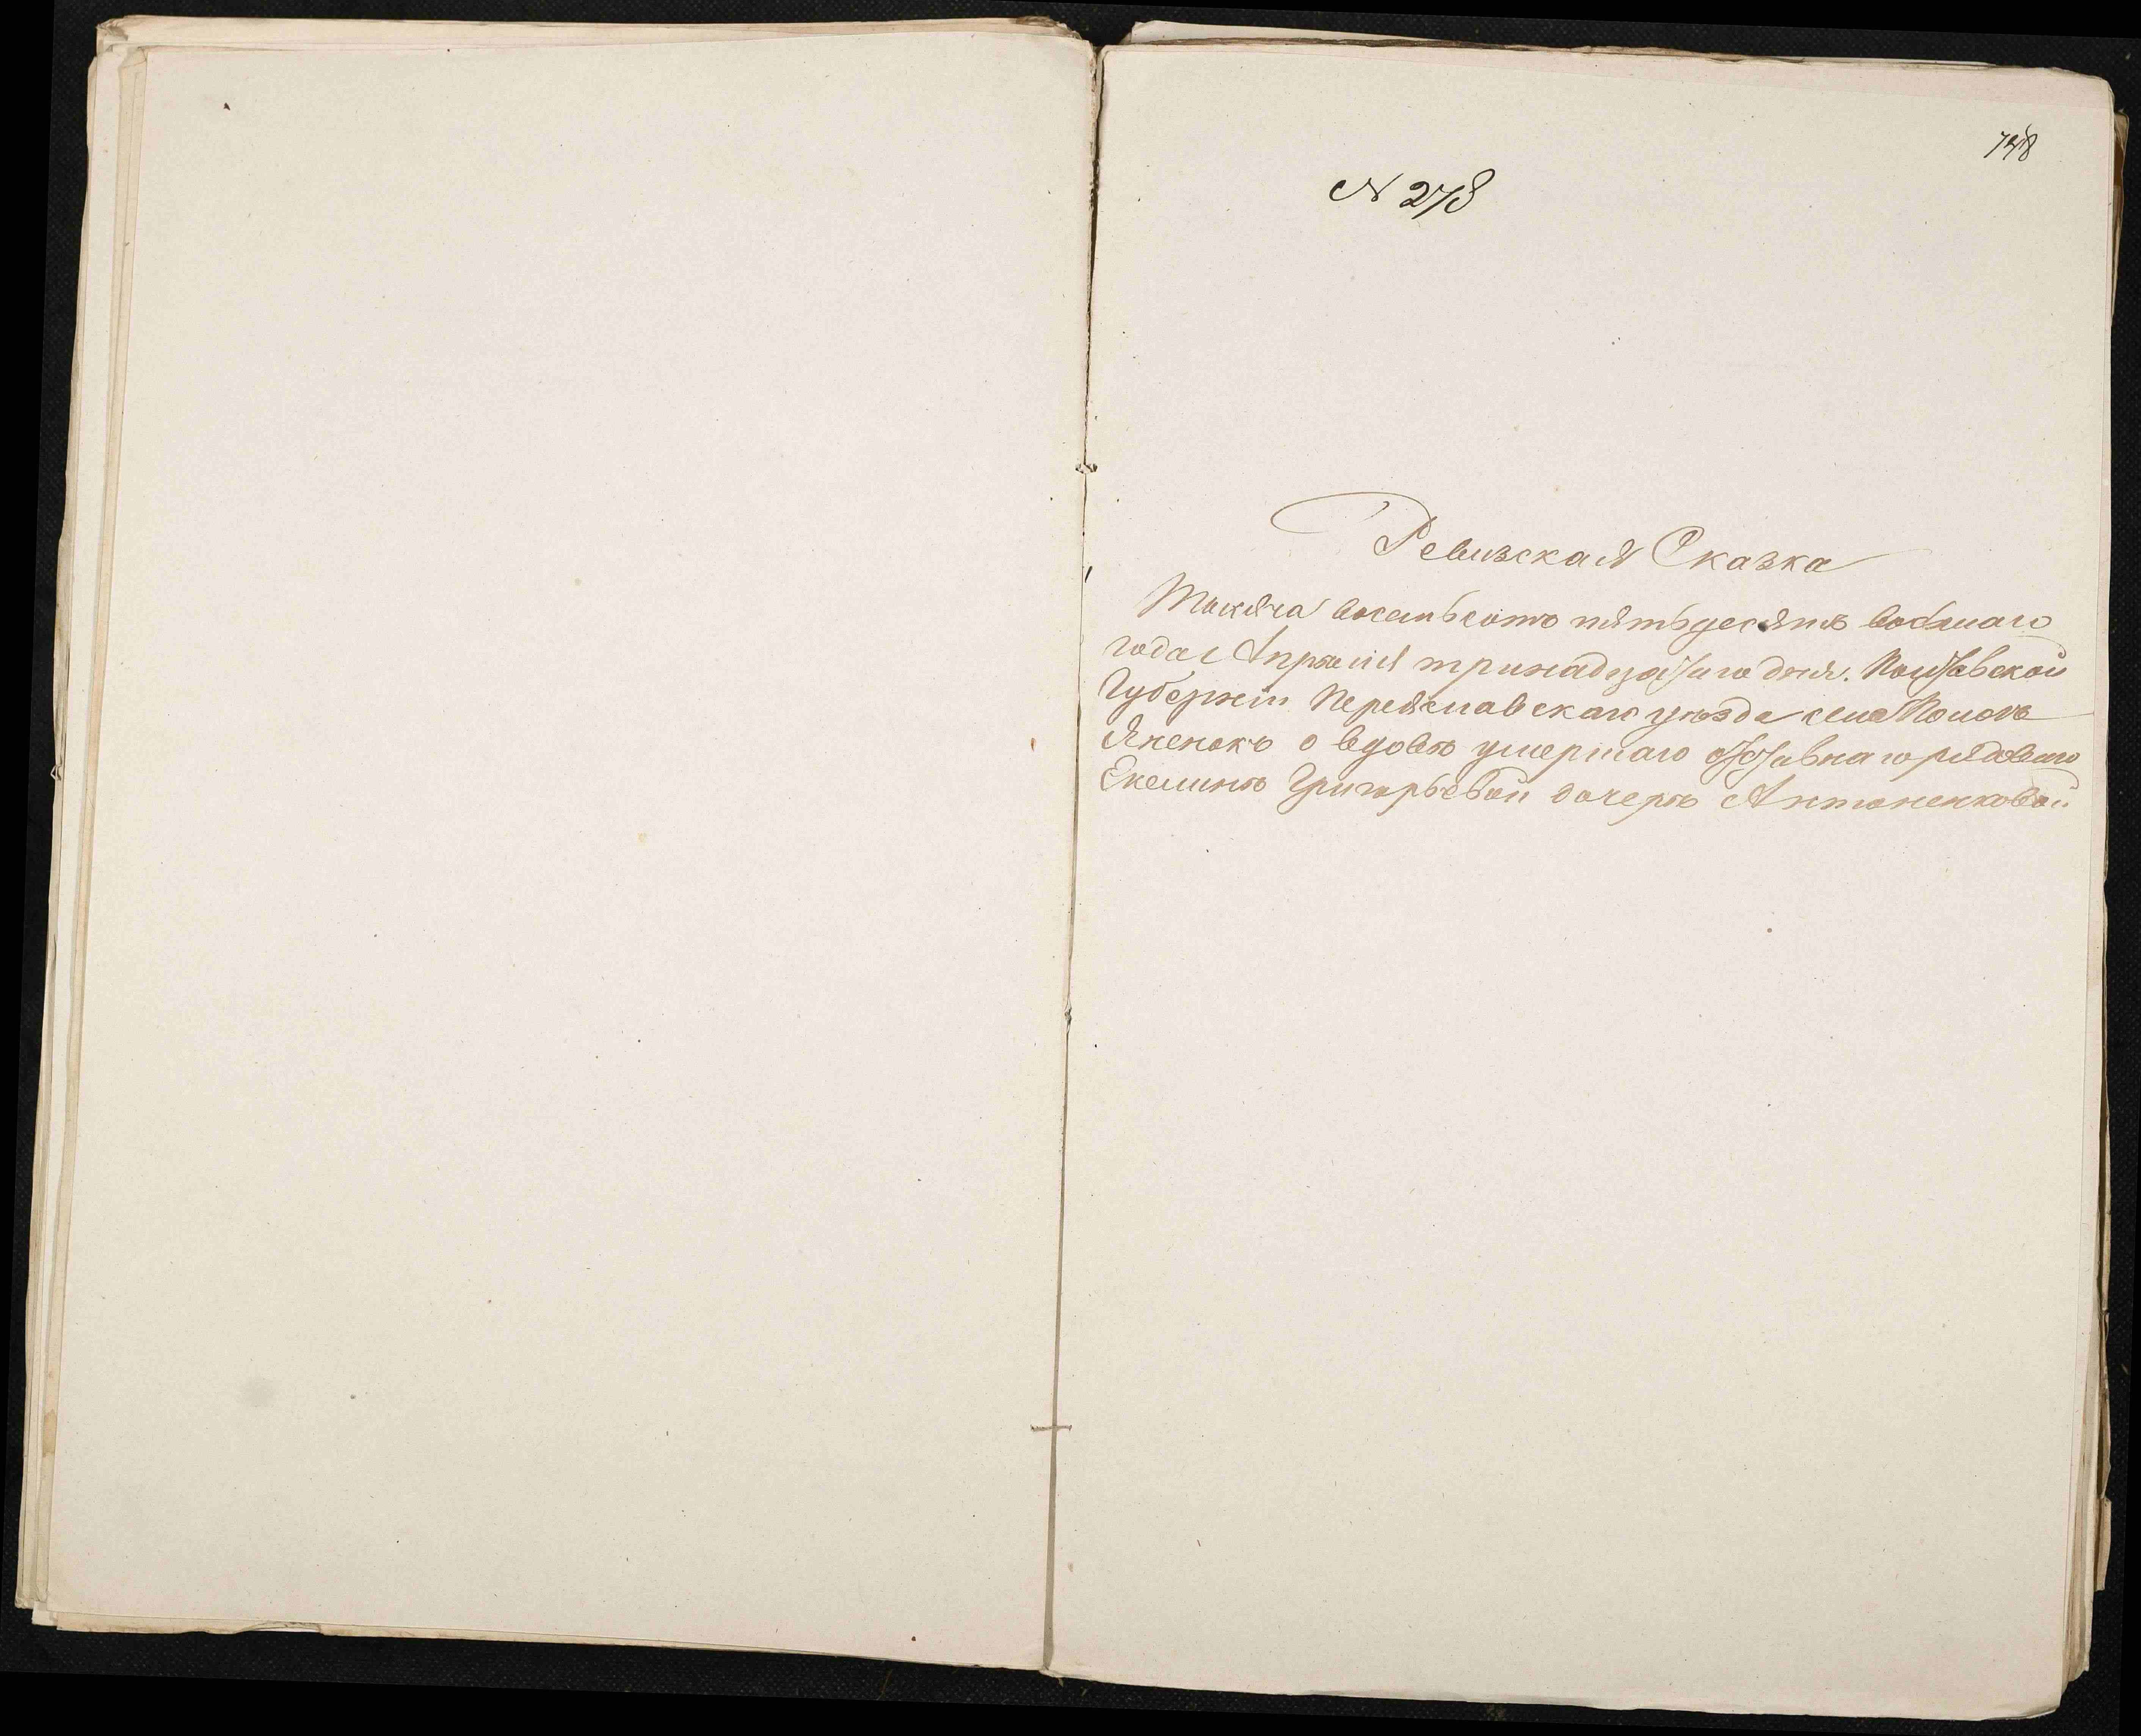 N 278
Ревизская Сказка
Тысяча восемьсотъ пятьдесятъ восмаго
года Апрѣля тринадцатаго дня. Полтавской
Губерніи Переяславскаго уѣзда села
о вдовѣ умершаго отставнаго рядоваго
Григорьевой дочерѣ Антоненковой